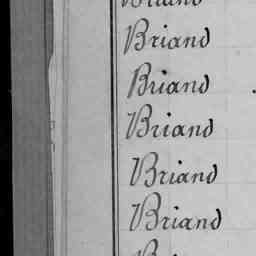 Briand
Briand
Briand
Briand
Briand
Briand